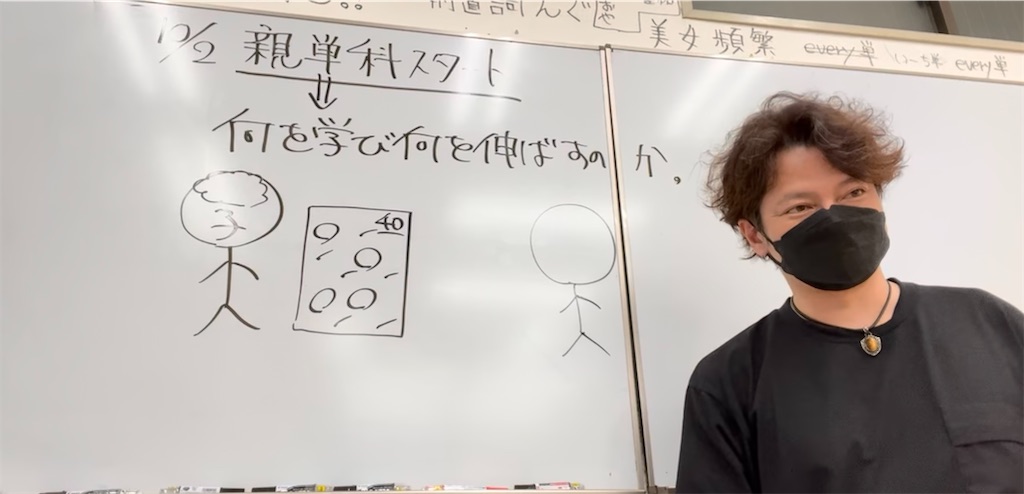 美女頻繁 every単 いーち単 every単
12/2 親単科スタート
何を学び何を伸ばすのか。
40